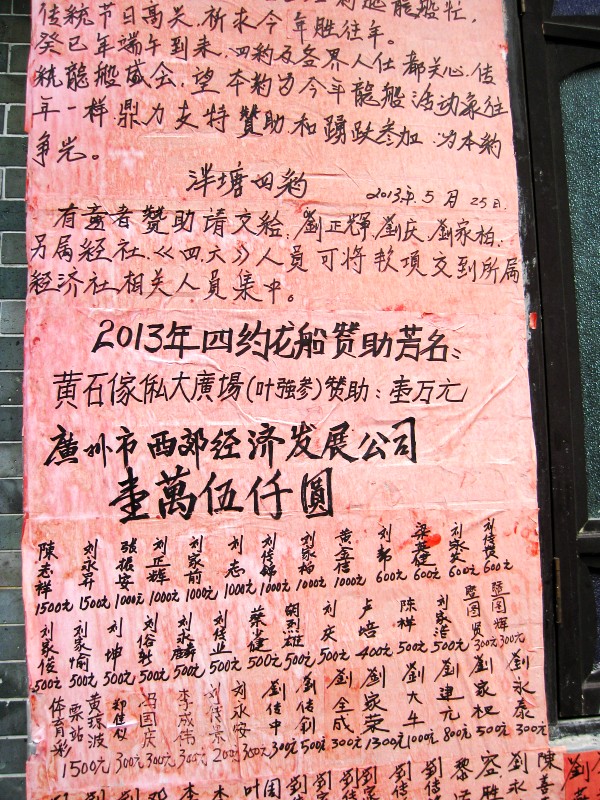 传统节日高关，祈求今年胜往年。
癸巳年端午到来，四约及各界人仕都关心传
统龍船盛会，望本約为今年龍船活动象往
年一样鼎力支持贊助和踴跃参加，为本約
争光。
泮塘四約
2013年5月25日
有意者贊助請交給，劉正輝，劉庆，劉家柏，
另属经社《四大》人員可将款项交到所属
经济社相关人員集中。
2013年四约龙船赞助芳名：
黄石傢俬大廣場(叶强参)赞助：壹万元
廣州市西郊经济发展公司
壹萬伍仟圓
陳志祥 刘永昇 張振安 刘正輝 刘家前 刘志 刘传锦 刘家柏 黄金信 刘郭 梁英健 刘永安
1500元 1500元 1000元 1000元 1000元 1000元 1000元 1000元 1000元 600元 600元 600元 600元
刘家俊 刘家愉 刘坤 刘俗新 刘永麟 刘传业 蔡少健 刘庆 卢培 陈祥 刘家浩
500元 500元 500元 500元 500元 500元 500元 500元 500元 400元 500元 500元 300元 300元
体育彩票站 黄珠波 郑佳似 冯国庆 李成伟 刘传京 刘永安 劉传中 劉传钊 劉全成 劉家荣 劉大牛 劉連元 劉家祀 劉永泰
1500元 300元 300元 300元 200元 300元 300元 500元 300元 1300元 1000元 800元 500元 300元